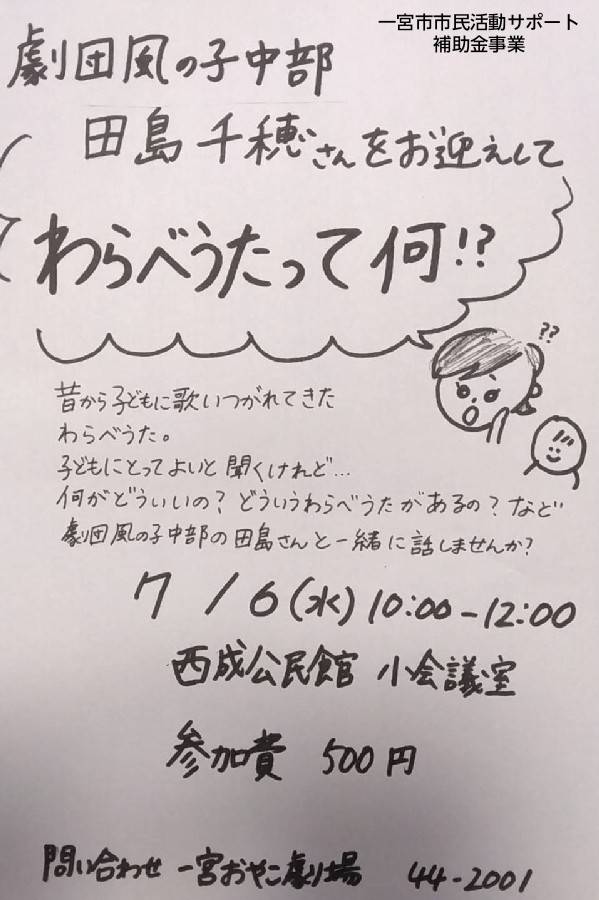 一宮市市民活動サポート
補助金事業
劇団風の子中部
田島千穂さんをお迎えして
わらべうたって何!?
??
昔から子どもに歌いつがれてきた
わらべうた。
子どもにとってよいと聞くけれど…
何がどういいの?どういうわらべうたがあるの?など
劇団風の子中部の田島さんと一緒に話しませんか?
7/6(水)10:00-12:00
西成公民館 小会議室
参加費 500円
問い合わせ 一宮おやこ劇場 44-2001